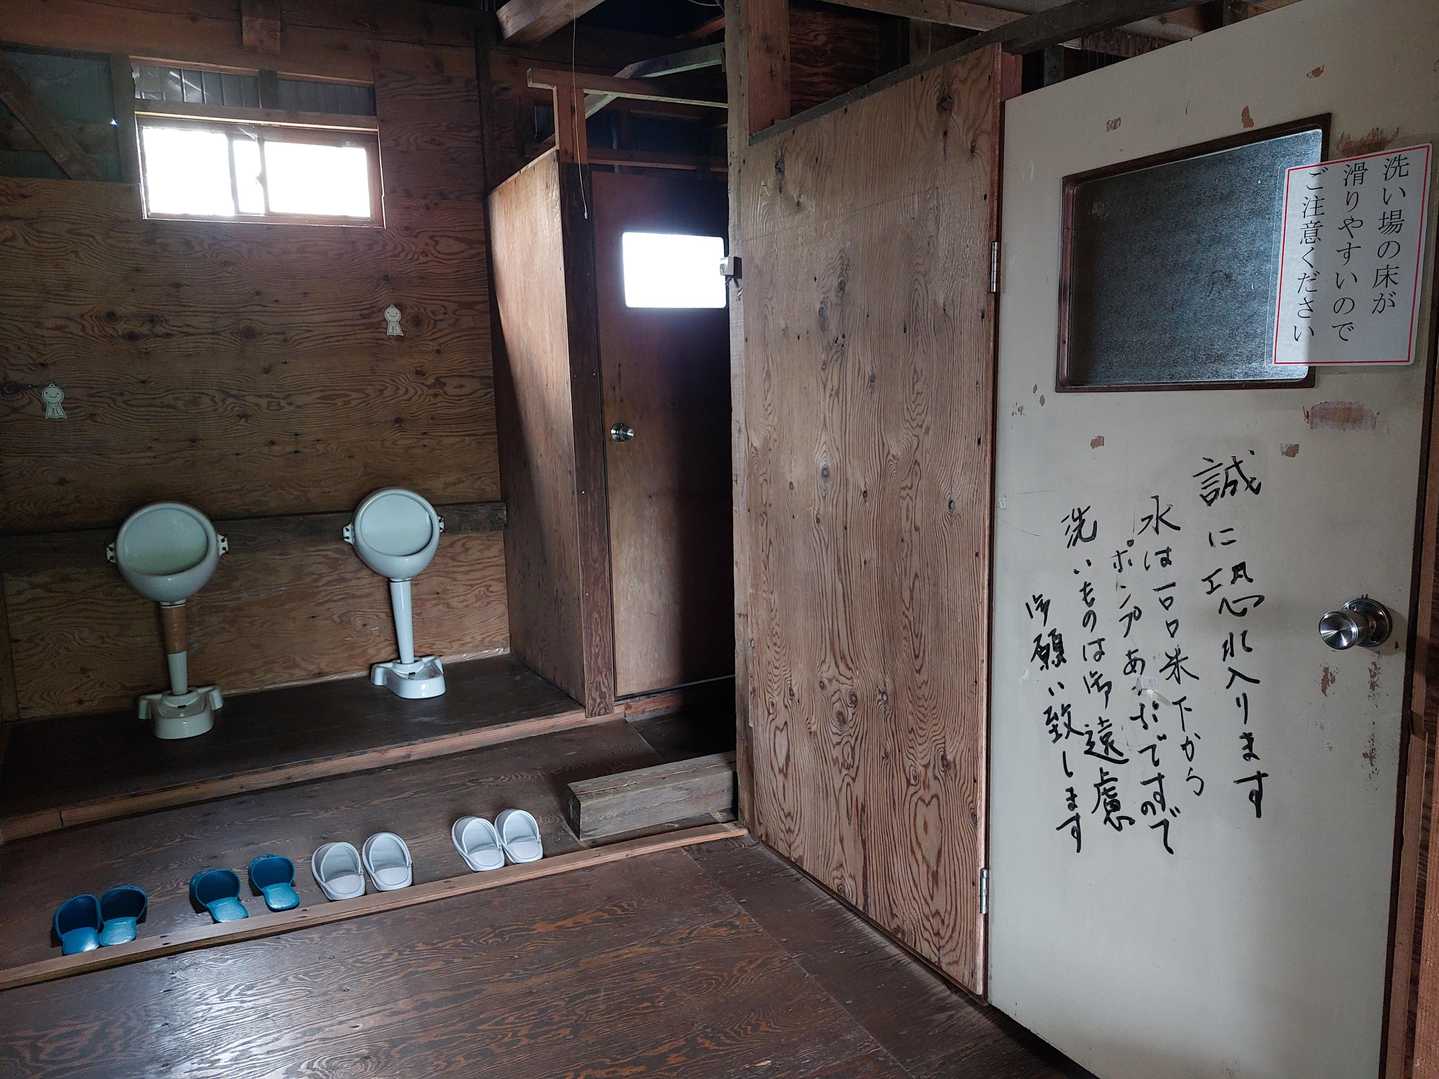 洗い場の床が
滑りやすいので
ご注意ください
誠に恐れ入ります
水は一〇〇米下から
ポンプあげですので
洗いものは御遠慮
御願い致します